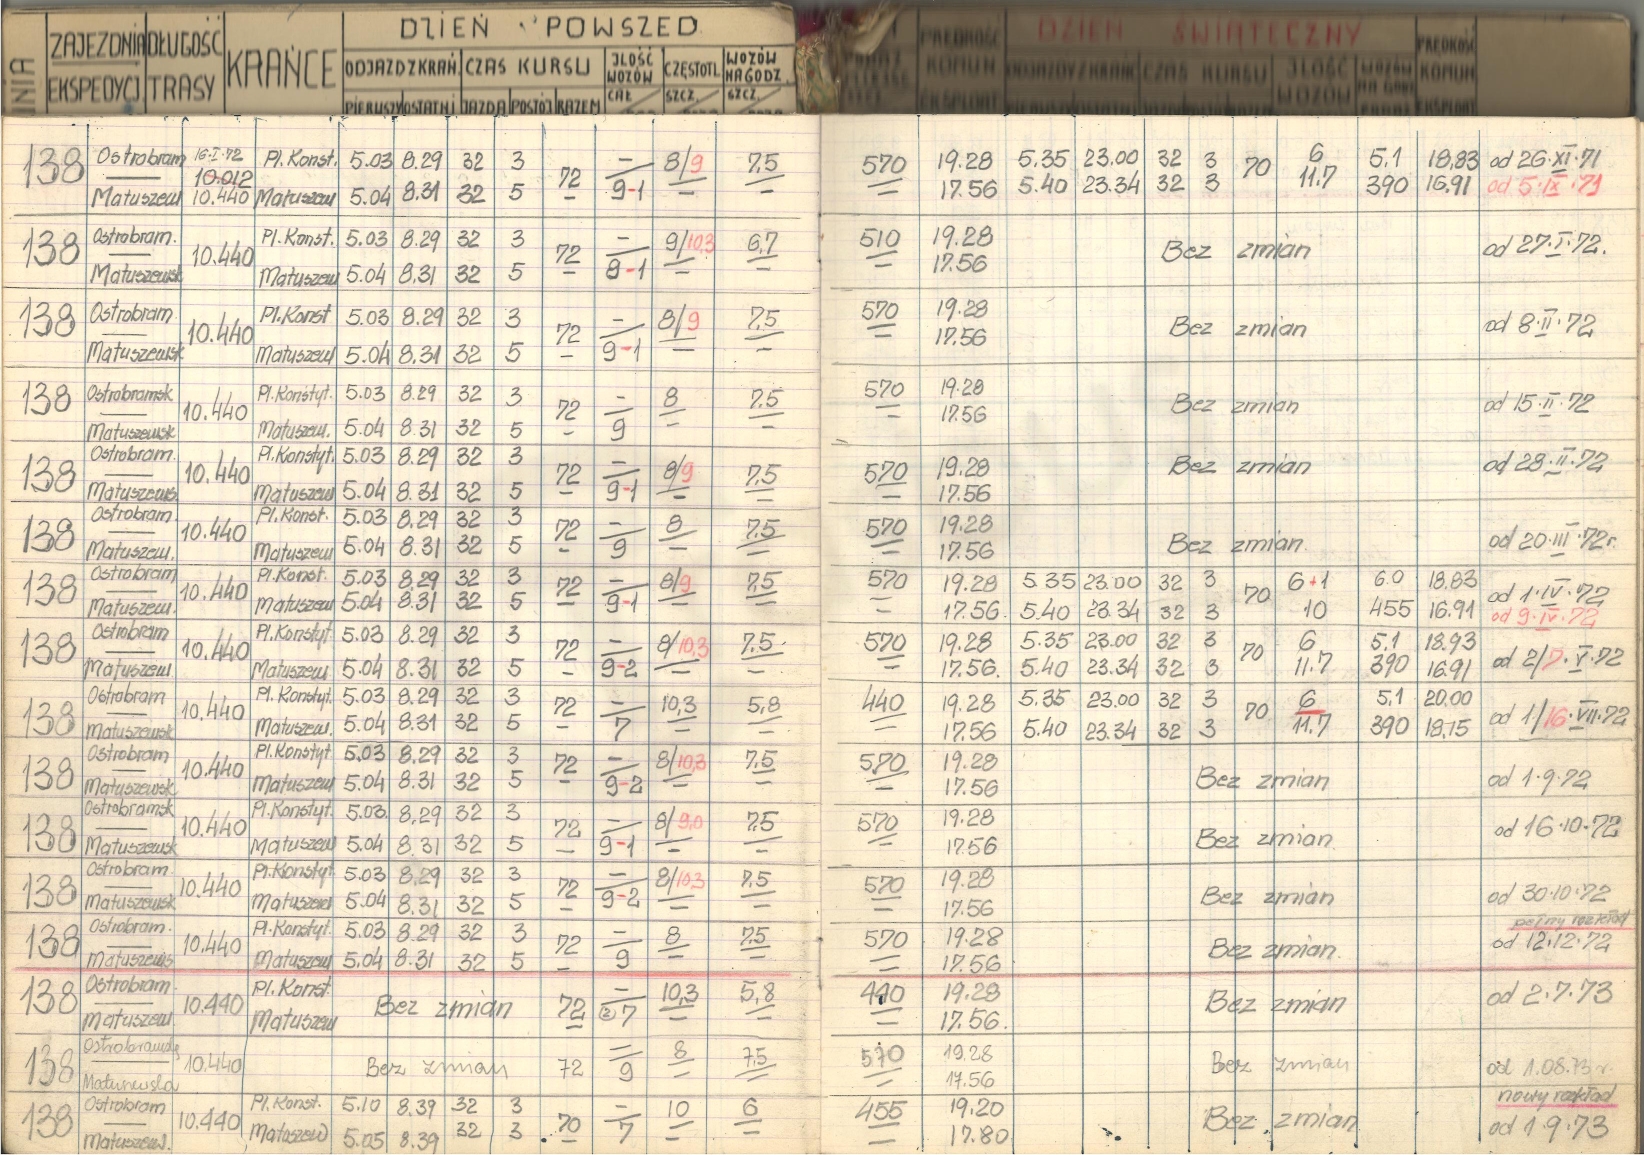 ZAJEZDNIA DŁUGOŚĆ KRAŃCE DZIEŃ POWSZED DZIEŃ ŚWIĄTECZNY
EKSPEDYCJ TRASY ODJAZD Z KRAŃ. CZAS KURSU JLOŚĆ WOZÓW CZĘSTOTL. WOZÓW NA GODZ. PRĘDKOŚĆ KOMUN CZAS KURSU JLOŚĆ WOZÓW PRĘDKOŚĆ KOMUN
PIERWSZY OSTATNI JAZDA POSTÓJ RAZEM CAŁ SZCZ. SZCZ. EKSPLOAT
138 Ostrobram 16-I-72 Pl. Konst. 5.03 8.29 32 3 72 — 8/9 7,5 570 19.28 5.35 23.00 32 3 70 6 5,1 18,83 od 26·XI·71
10.012
Matuszew 10.440 Matuszew 5.04 8.31 32 5 — 9-1 — — — 17.56 5.40 23.34 32 3 11.7 390 16.91 od 5·IX·71
138 Ostrobram. 10.440 Pl. Konst. 5.03 8.29 32 3 72 — 9/10,3 6,7 510 19.28 Bez zmian od 27·I·72.
Matuszewsk Matuszew 5.04 8.31 32 5 — 8-1 — — — 17.56
138 Ostrobram. 10.440 Pl. Konst 5.03 8.29 32 3 72 — 8/9 7,5 570 19.28 Bez zmian od 8·II·72
Matuszewsk Matuszew 5.04 8.31 32 5 — 9-1 — — — 17.56
138 Ostrobramsk 10.440 Pl. Konstyt. 5.03 8.29 32 3 72 — 8 7,5 570 19.28 Bez zmian od 15·II·72
Matuszewsk Matuszew. 5.04 8.31 32 5 — 9 — — — 17.56
138 Ostrobram. 10.440 Pl. Konstyt. 5.03 8.29 32 3 72 — 8/9 7,5 570 19.28 Bez zmian od 28·II·72
Matuszews. Matuszew 5.04 8.31 32 5 — 9-1 — — — 17.56
138 Ostrobram. 10.440 Pl. Konst. 5.03 8.29 32 3 72 — 8 7,5 570 19.28 Bez zmian. od 20·III·72r.
Matuszew. Matuszew 5.04 8.31 32 5 — 9 — — — 17.56
138 Ostrobram 10.440 Pl. Konst. 5.03 8.29 32 3 72 — 8/9 7,5 570 19.28 5.35 23.00 32 3 70 6+1 6.0 18,83 od 1·IV·72
Matuszew. Matuszew 5.04 8.31 32 5 — 9-1 — — — 17.56. 5.40 23.34 32 3 10 455 16.91 od 9·IV·72
138 Ostrobram 10.440 Pl. Konstyt. 5.03 8.29 32 3 72 — 8/10,3 7,5 570 19.28 5.35 23.00 32 3 70 6 5,1 18.93 od 2/7·V·72
Matuszew Matuszew. 5.04 8.31 32 5 — 9-2 — — — 17.56. 5.40 23.34 32 3 11.7 390 16.91
138 Ostrobram 10.440 Pl. Konstyt. 5.03 8.29 32 3 72 — 10,3 5,8 440 19.28 5.35 23.00 32 3 70 6 5,1 20.00 od 1/16·VII·72
Matuszewsk Matuszew. 5.04 8.31 32 5 — 7 — — — 17.56 5.40 23.34 32 3 11.7 390 18,15
138 Ostrobram 10.440 Pl. Konstyt 5.03 8.29 32 3 72 — 8/10,3 7,5 570 19.28 Bez zmian od 1·9·72
Matuszewsk Matuszew 5.04 8.31 32 5 — 9-2 — — — 17.56
138 Ostrobramsk 10.440 Pl. Konstyt. 5.03. 8.29 32 3 72 — 8/9,0 7,5 570 19.28 Bez zmian. od 16·10·72
Matuszewsk Matuszew 5.04 8.31 32 5 — 9-1 — — — 17.56
138 Ostrobram. 10.440 Pl. Konstyt 5.03 8.29 32 3 72 — 8/10,3 7,5 570 19.28 Bez zmian od 30·10·72
Matuszewsk Matuszew 5.04 8.31 32 5 — 9-2 — — — 17.56
pełny rozkład
138 Ostrobram. 10.440 Pl. Konstyt. 5.03 8.29 32 3 72 — 8 7,5 570 19.28 Bez zmian. od 12·12·72
Matuszews Matuszew 5.04 8.31 32 5 — 9 — — — 17.56
138 Ostrobram. 10.440 Pl. Konst. Bez zmian 72 — 10,3 5,8 440 19.28 Bez zmian od 2·7·73
Matuszew Matuszew — ② 7 — — — 17.56.
138 10.440 Bez zmian 72 = 8 7,5 570 19.28 Bez zmian od 1.08.73 r.
9 = = = 17.56
nowy rozkład
138 Ostrobram 10.440 Pl. Konst. 5.10 8.39 32 3 70 — 10 6 455 19.20 Bez zmian od 1·9·73
Matuszew. Matuszew 5.05 8.39 32 3 — 7 — — — 17.80